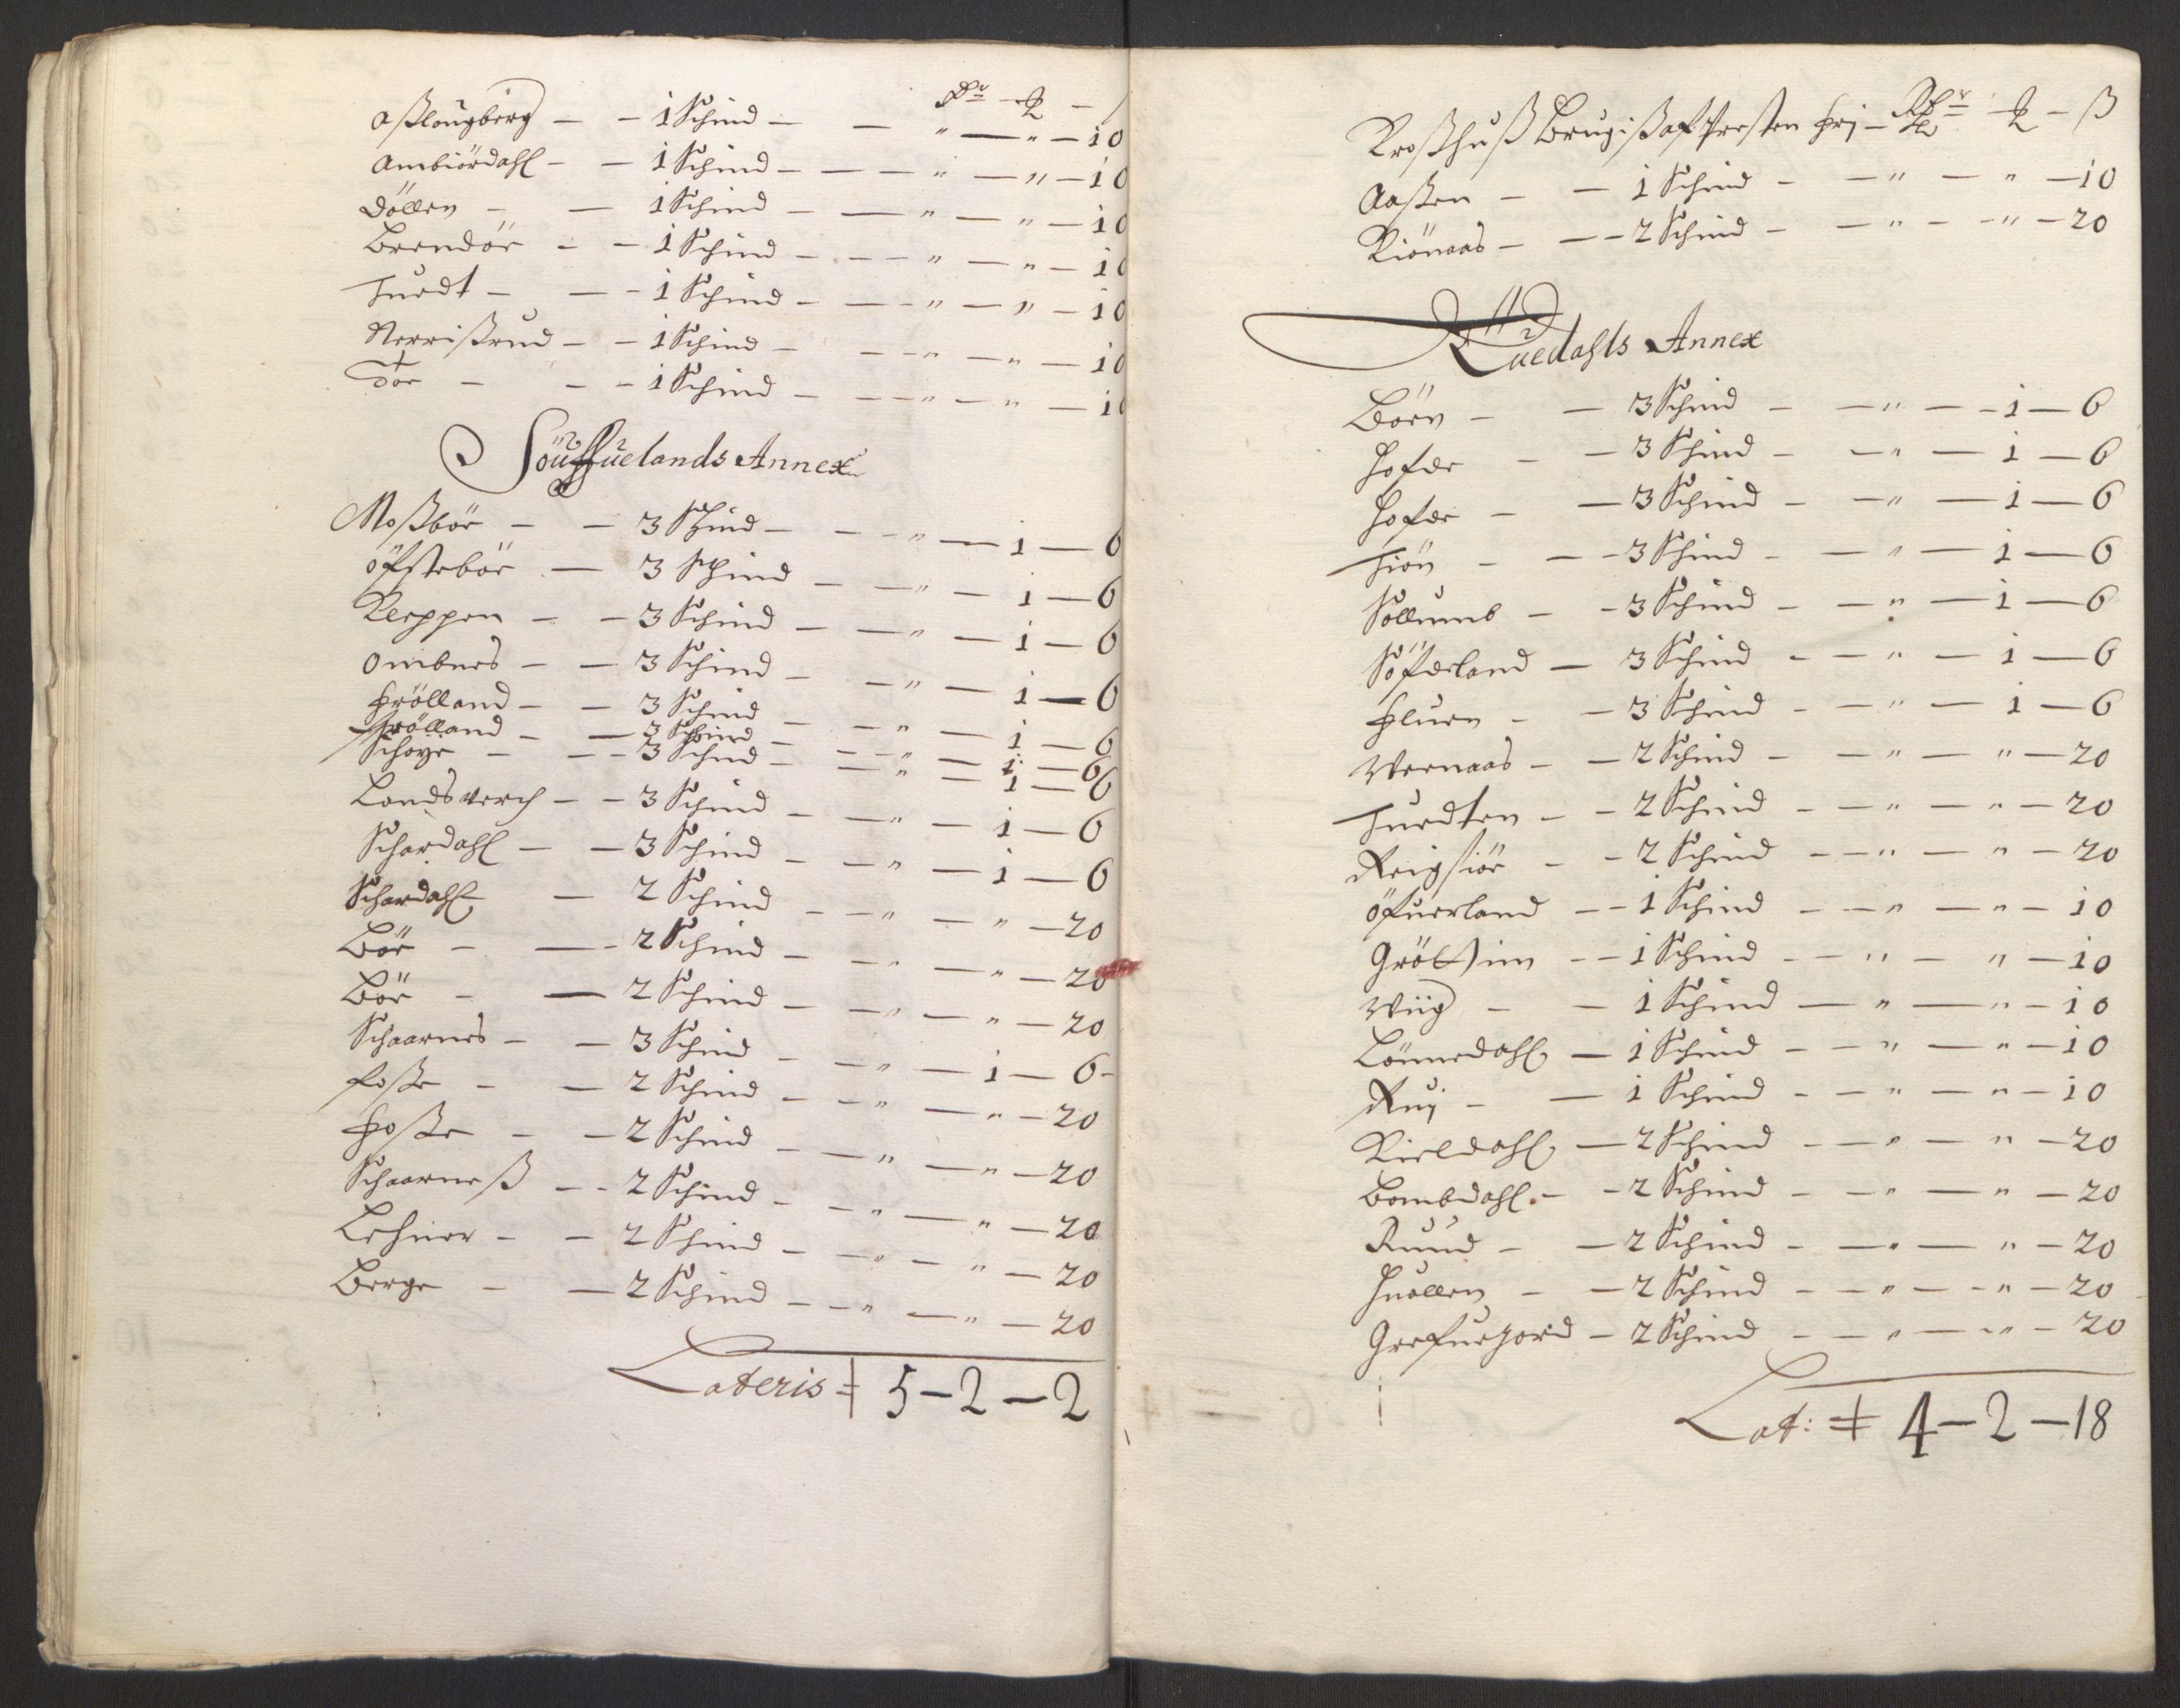 Aßlougberg — — 1 Schind — — " — " — 10
Ambiördahl — — 1 Schind — — " — " — 10
Döllen — — 1 Schind — — " — " — 10
Brendör — — 1 Schind — — " — " — 10
Tuedt — — 1 Schind — — " — " — 10
Nerrißrud — — 1 Schind — — " — " — 10
Dör — — 1 Schind — — " — " — 10
Annex
Moßbör — — 3 Schind — — " — 1 — 6
Öfstebör — 3 Schind — — " — 1 — 6
Kleppen — — 3 Schind — — " — 1 — 6
Ombnes — — 3 Schind — — " — 1 — 6
Frölland — — 3 Schind — — " — 1 — 6
Frölland — — 3 Schind — — " — 1 — 6
Schoye — — 3 Schind — — " — 1 — 6
Landsverch — — 3 Schind — — " — 1 — 6
Schardahl — — 3 Schind — — " — 1 — 6
Schardahl — 2 Schind — — " — " — 20
Bör — — 2 Schind — — " — " — 20
Bör — — 2 Schind — — " — " — 20
Schaarnes — — 3 Schind — — " — 1 — 6
Foße — — 2 Schind — — " — " — 20
Foße — — 2 Schind — — " — " — 20
Schaarneß — — 2 Schind — — " — " — 20
Lehner — — 2 Schind — — " — " — 20
Berge — — 2 Schind — — " — " — 20
Lateris ≠ 5 — 2 — 2
Kroßhuß Brugiß af Presten frj — Rdr — — ß
Aaßen — — 1 Schind — — " — " — 10
Kiönaas — — 2 Schind — — " — " — 20
Luedahls Annex
Börn — — 3 Schind — — " — 1 — 6
Hofde — — 3 Schind — — " — 1 — 6
Hofde — — 3 Schind — — " — 1 — 6
Tiön — — 3 Schind — — " — 1 — 6
Sollumb — — 3 Schind — — " — 1 — 6
Söfderland — 3 Schind — — " — 1 — 6
Fluen — — 3 Schind — — " — 1 — 6
Wernaas — — 2 Schind — — " — " — 20
Tuedten — — 2 Schind — — " — " — 20
Reigsiör — — 2 Schind — — " — " — 20
Öfuerland — — 1 Schind — — " — " — 10
1 Schind — — " — " — 10
Wiig — — 1 Schind — " — " — 10
Lönnedahl — 1 Schind — — " — " — 10
Ruj — — 1 Schind — — " — " — 10
Kieldahl — 2 Schind — — " — " — 20
Bombdahl — — 2 Schind — — " — " — 20
Ruud — — 2 Schind — — " — " — 20
Huallen — — 2 Schind — — " — " — 20
Grefuejord — 2 Schind — — " — " — 20
Lat: ≠ 4 — 2 — 18